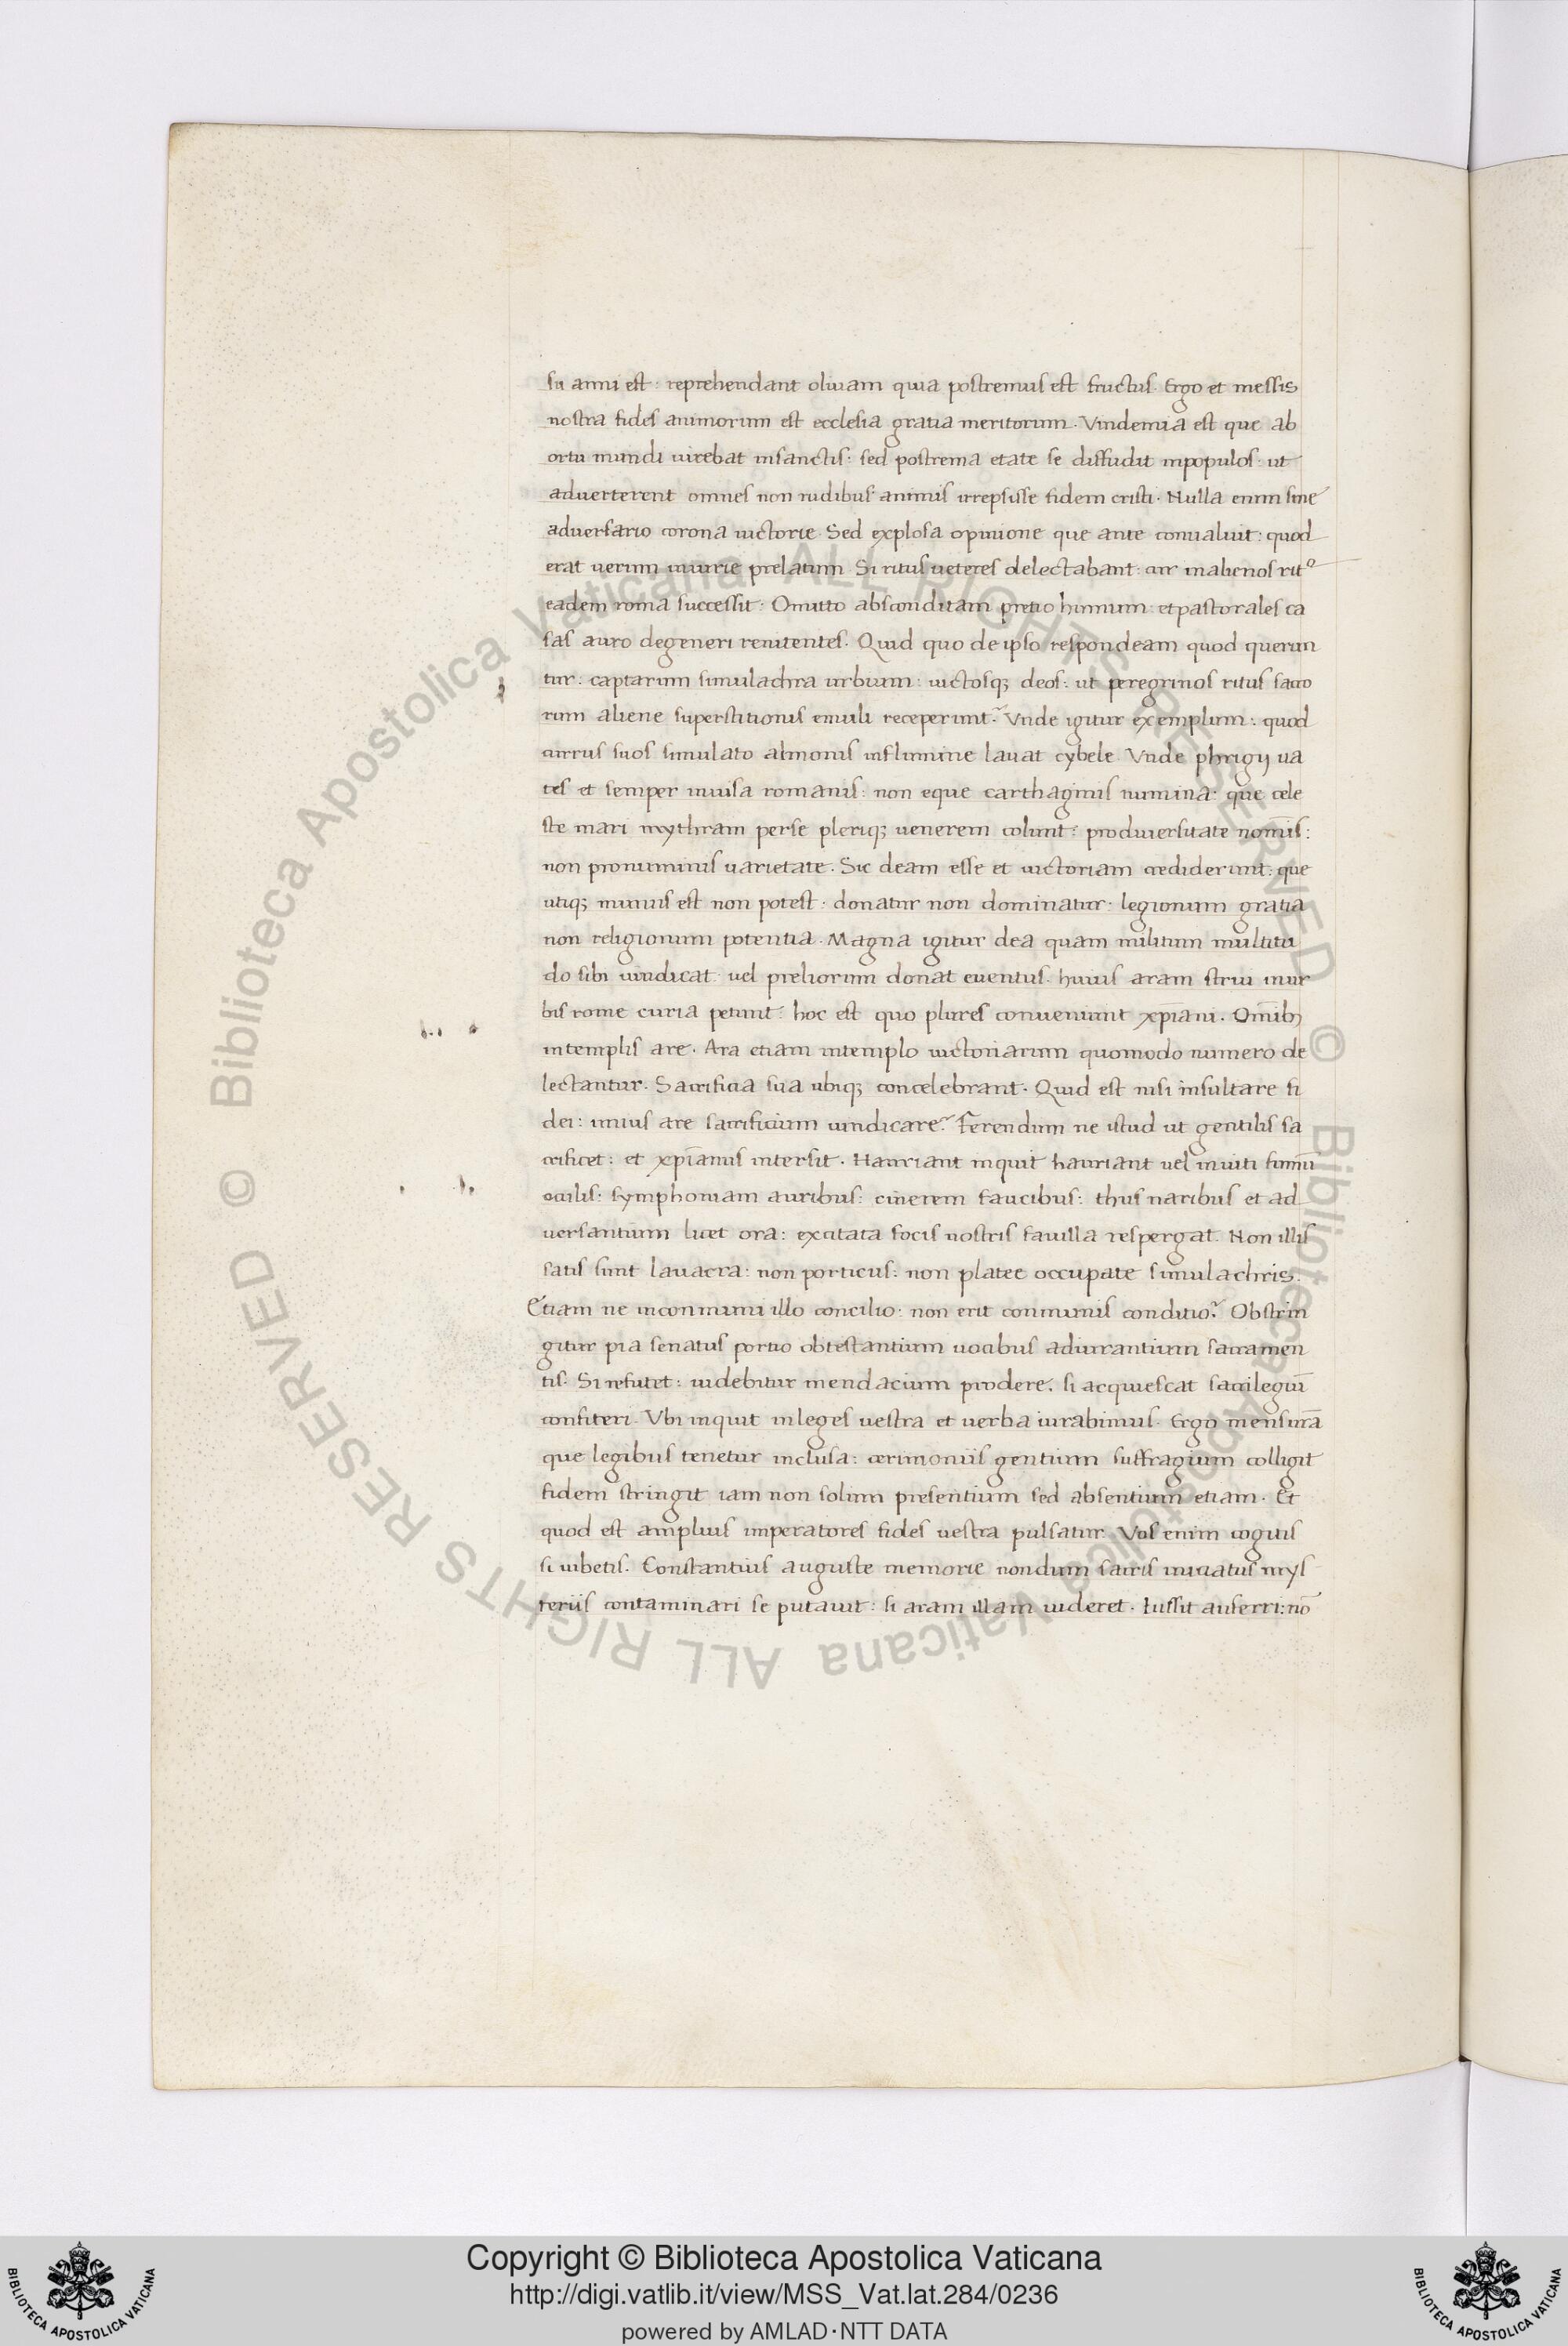 su anni est: reprehendant oliuam quia postremus est fructus. Ergo et messis
nostra fides animorum est ecclesia gratia meritorum. Vindemia est que ab
ortu mundi uirebat insanctis: sed postrema etate se diffudit inpopulos: ut
aduerterent omnes non rudibus animis irrepsisse fidem cristi. Nulla enim sine
aduersario corona uictorie. Sed explosa opinione que ante conualuit: quod
erat uerum iniurie prelatum. Si ritus ueteres delectabant: cur inalienos ritꝰ
eadem roma successit: Omitto absconditam pretio humum: et pastorales ca
sas auro degeneri renitentes. Quid quo de ipso respondeam quod querun
tur: captarum simulachra urbium: uictosqꝫ deos: ut peregrinos ritus sacro
rum aliene superstitionis emuli receperunt? Vnde igitur exemplum: quod
currus suos simulato almonis influmine lauat cybele. Vnde phrigij ua
tes et semper inuisa romanis: non eque carthaginis numina: que cele
ste mari mythram perse pleriqꝫ uenerem colunt: prodiuersitate nom̄is:
non pronuminis uarietate. Sic deam esse et uictoriam crediderunt: que
utiqꝫ munus est non potest: donatur non dominatur: legionum gratia
non religionum potentia. Magna igitur dea quam militum multitu
do sibi uindicat: uel preliorum donat euentus. huius aram strui inur
bis rome curia petunt: hoc est quo plures conueniunt xp̄iani. Om̄ibꝫ
intemplis are. Ara etiam intemplo uictoriarum quomodo numero de
lectantur. Sacrificia sua ubiqꝫ concelebrant. Quid est nisi insultare fi
dei: unius are sacrificium uindicare? Ferendum ne istud ut gentilis sa
crificet: et xp̄ianus intersit. Hauriant inquit hauriant uel inuiti fumū
oculis: symphoniam auribus: cinerem faucibus: thus naribus et ad
uersantium licet ora: excitata focis nostris fauilla respergat. Non illis
satis sunt lauacra: non porticus: non platee occupate simulachris.
Etiam ne inconmuni illo concilio: non erit conmunis conditio? Obstrin
gitur pia senatus portio obtestantium uocibus adiurantium sacramen
tis. Si refutet: uidebitur mendacium prodere. si acquiescat sacrilegiū
confiteri. Vbi inquit inleges uestra et uerba iurabimus. Ergo mensurā
que legibus tenetur inclusa: cerimoniis gentium suffragium colligit
fidem stringit iam non solum presentium sed absentium etiam. Et
quod est amplius imperatores fides uestra pulsatur. Vos enim cogitis
si iubetis. Constantius auguste memorie nondum sacris iniciatus mys
teriis contaminari se putauit: si aram illam uideret. Iussit auferri: nō
Copyright © Biblioteca Apostolica Vaticana
http://digi.vatlib.it/view/MSS_Vat.lat.284/0236
powered by AMLAD·NTT DATA